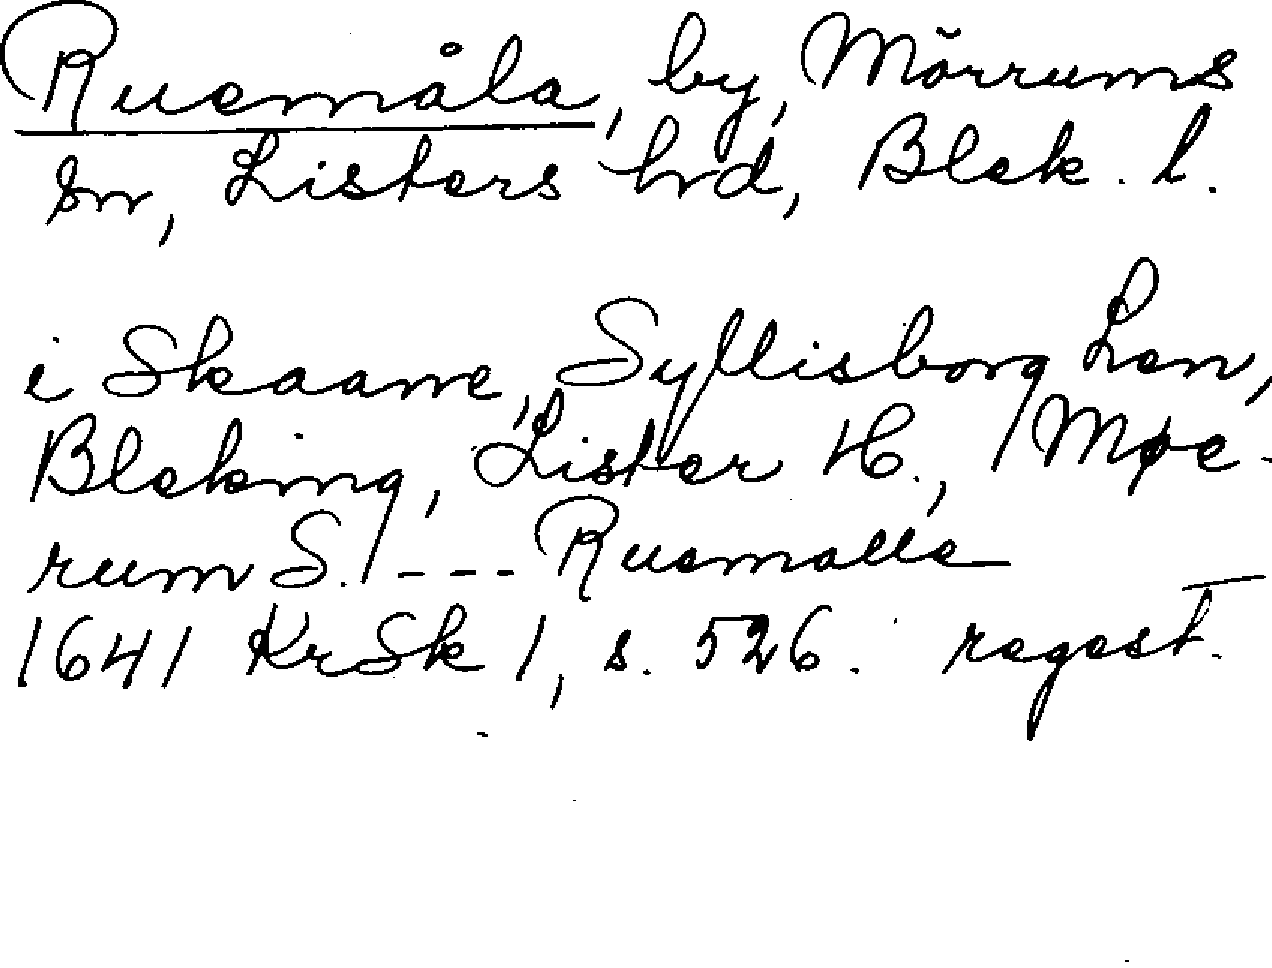 Ruemåla, by, Mörrums
sn, Listers hrd, Blek. l.
i Skaane, Syllisborg Len,
Bleking, Lister H., /Møe-
rum S./ --- Ruemalle
1641 KrSk 1, s. 526. regest.